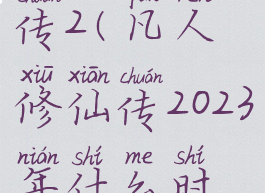 chuán fán rén
传2(凡人
xiū xiān chuán
修仙传2023
nián shí me shí
年什么时